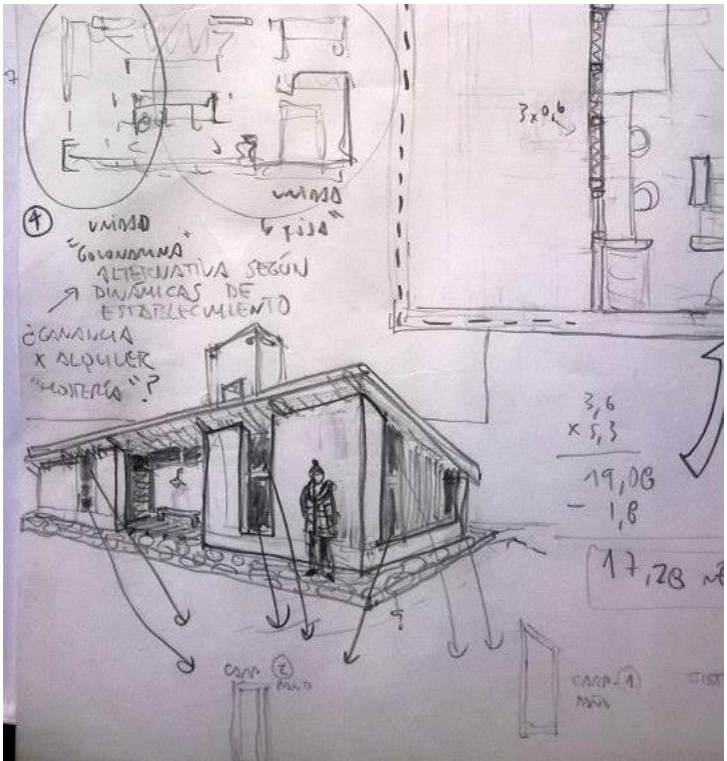 3x0,6
④ UNIDAD
"GOLONDRINA"
UNIDAD
"FIJA"
ALTERNATIVA SEGÚN
DINÁMICAS DE
ESTABLECIMIENTO
¿GANANCIA
X ALQUILER
"HOSTERÍA"?
3,6
x 5,3
19,08
- 1,8
17,28 m²
?
CARP ②
PAÑO
CARP-1
PAÑO
SIST